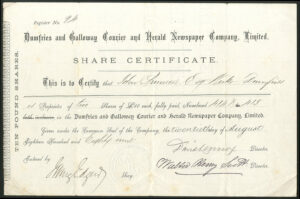 Register No. 24
Dumfries and Galloway Courier and Herald Newspaper Company, Limited.
SHARE CERTIFICATE.
TEN POUND SHARES.
This is to Certify that John Dumfries
is Proprietor of Two Shares of £10 each, fully paid, Numbered
in the Dumfries and Galloway Courier and Herald Newspaper Company, Limited.
Given under the Common Seal of the Company, the twentieth day of August
Eighteen Hundred and Eighty nine
Director
Entered by
Walter Henry Scott Director
Secy.